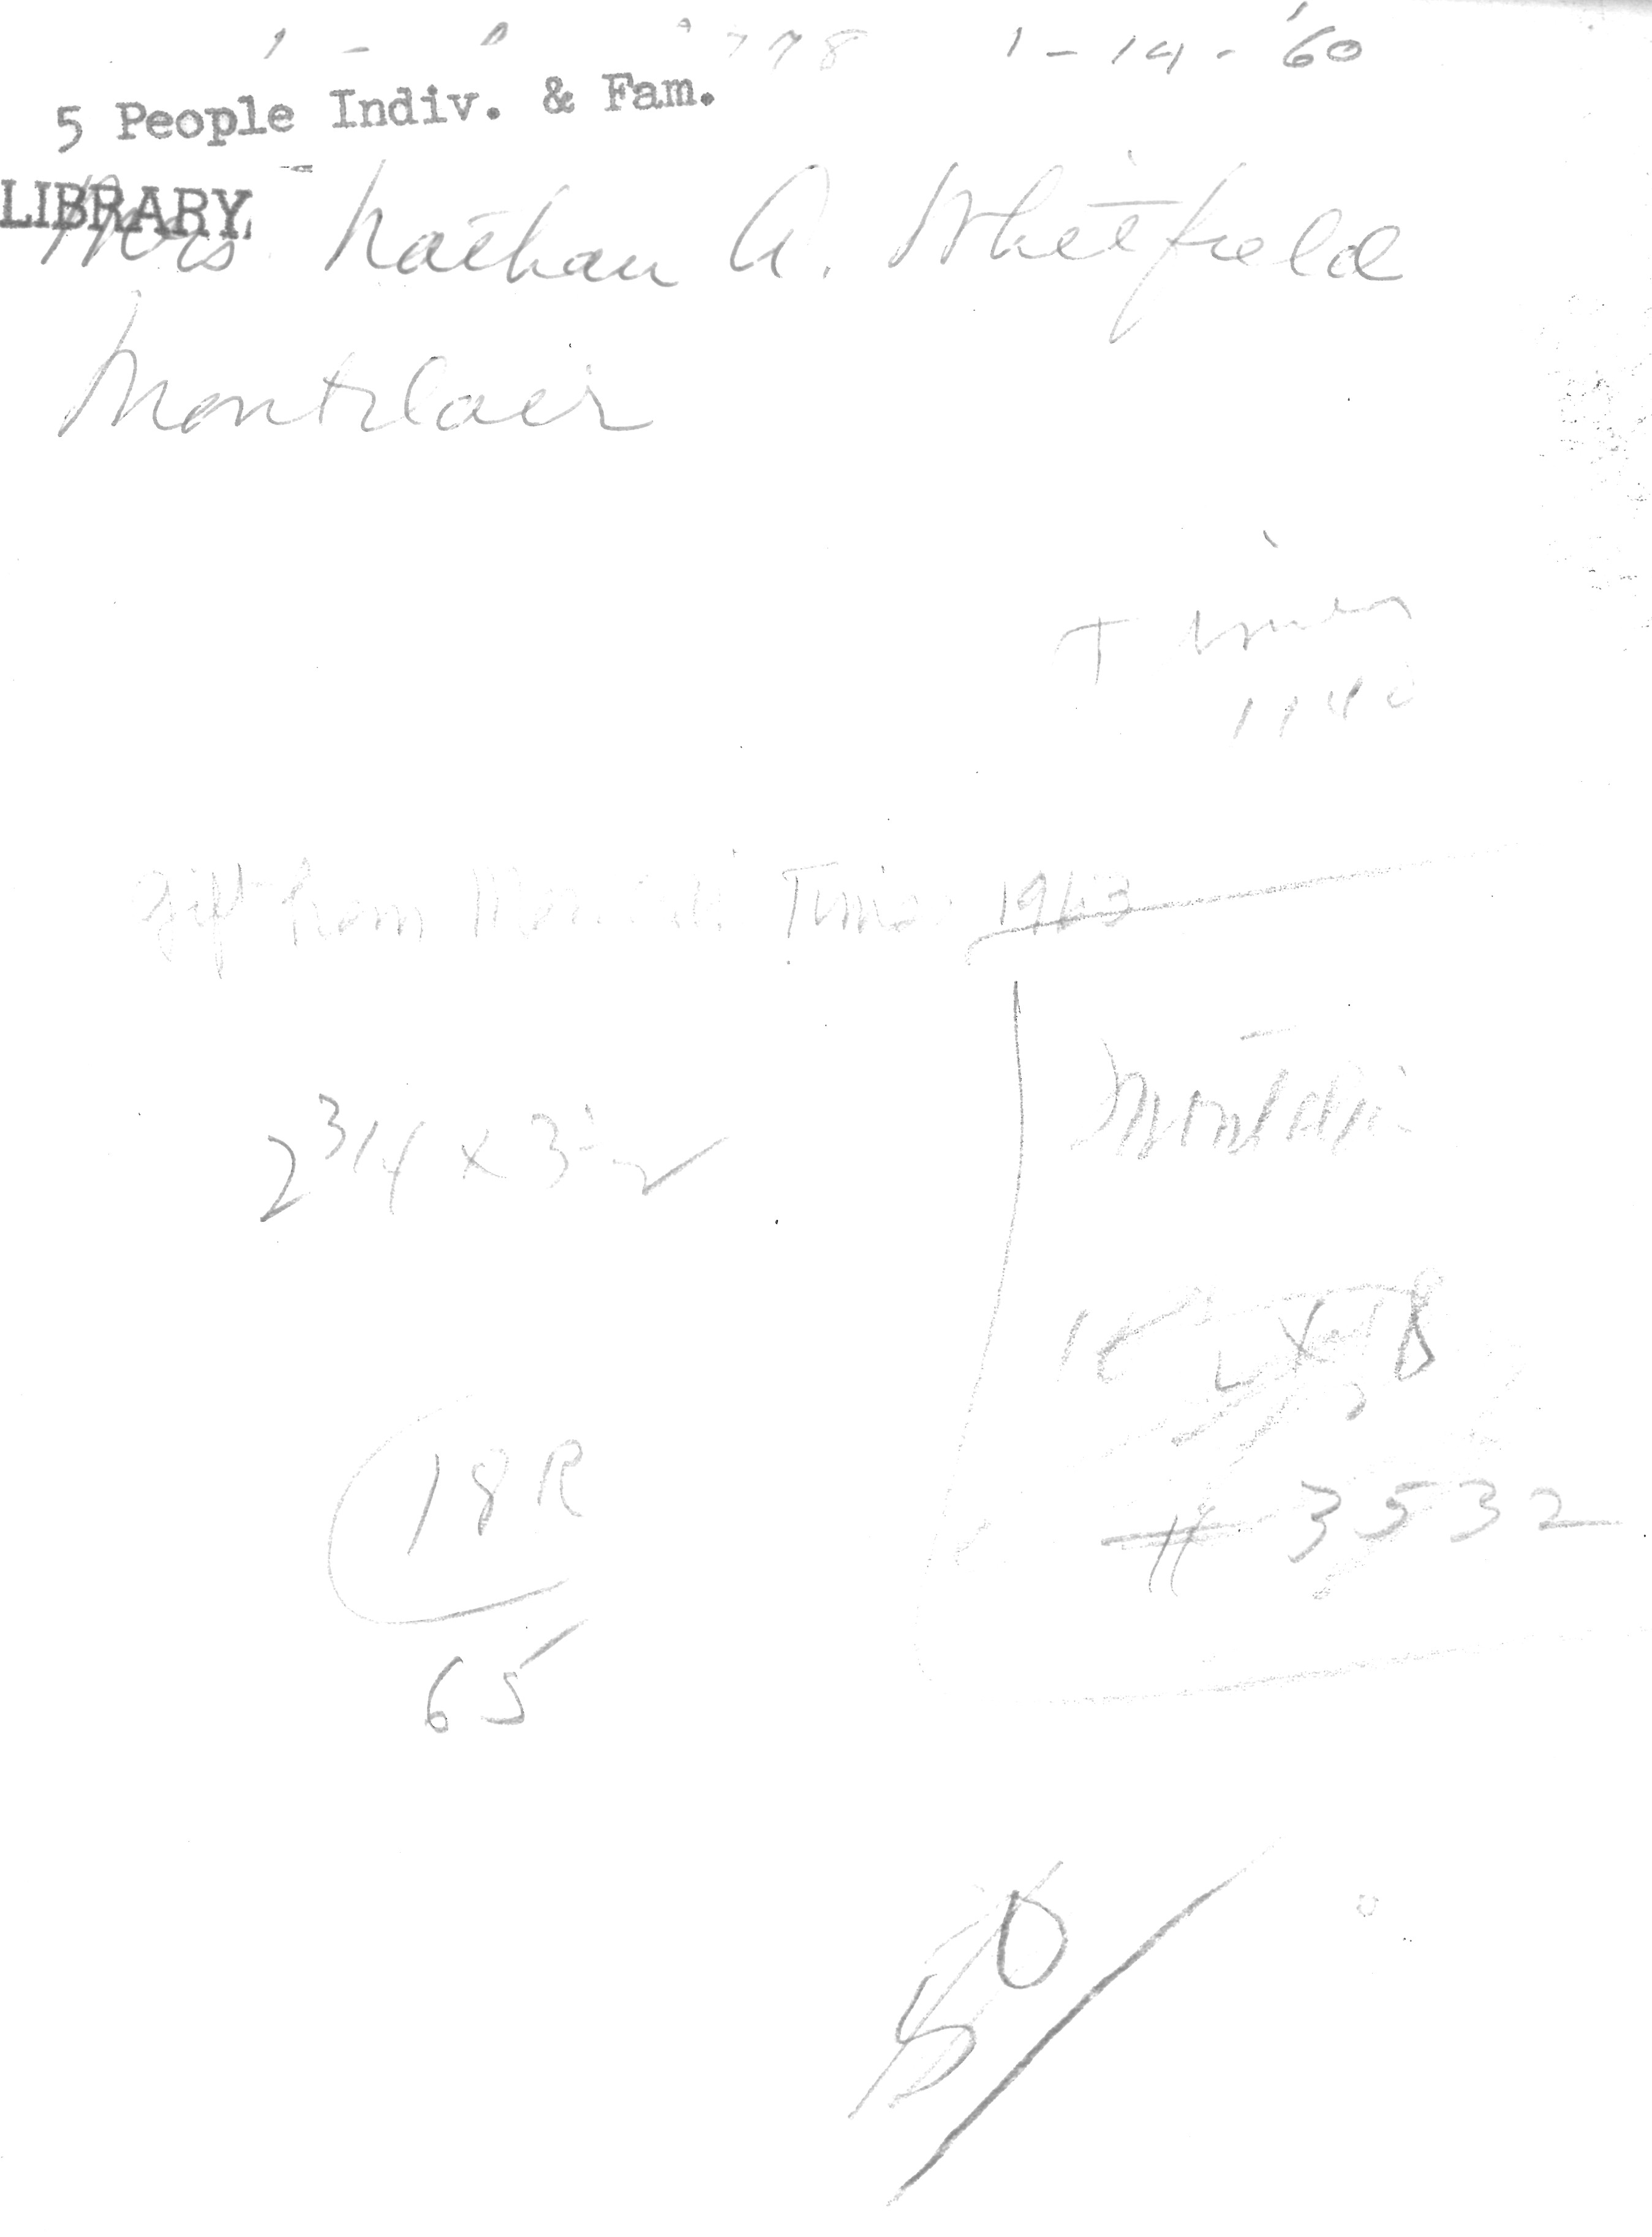 778 1-14-'60
5 People Indiv. & Fam.
LIBRARY
Mrs. Nathan A. Whitfield
Montclair
Times
Gift from Montclair Times 1963
2 3/4 x 3 1/2
Montclair
18R
65
# 3532
50